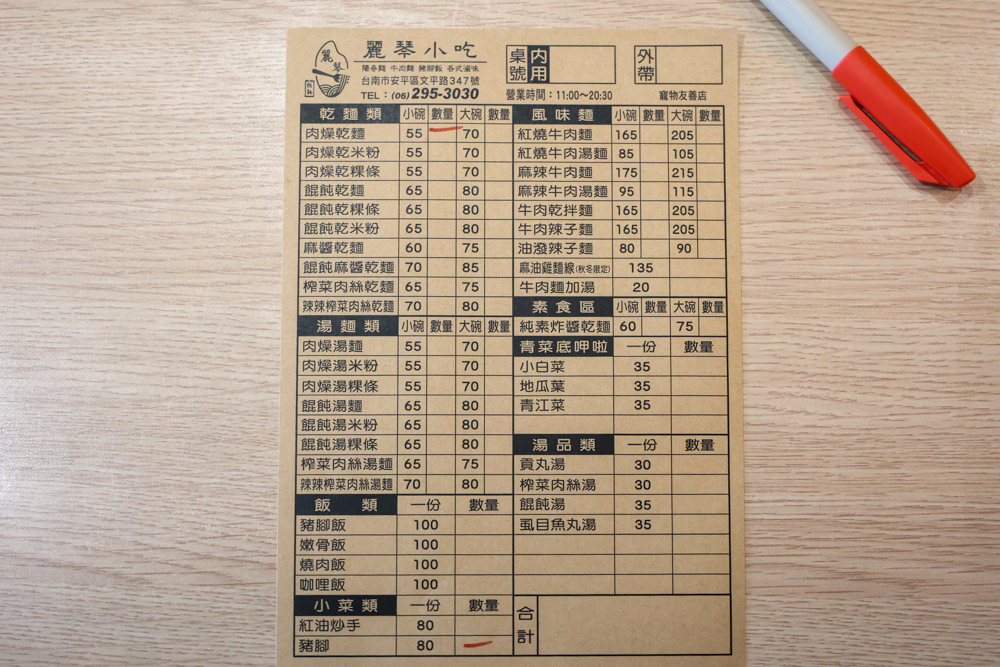 麗琴小吃
陽春麵 牛肉麵 豬腳飯 各式滷味
台南市安平區文平路347號
TEL:(06)295-3030
麗琴
桌號 內用
外帶
營業時間:11:00～20:30
寵物友善店
乾麵類 小碗 數量 大碗 數量
肉燥乾麵 55 70
肉燥乾米粉 55 70
肉燥乾粿條 55 70
餛飩乾麵 65 80
餛飩乾粿條 65 80
餛飩乾米粉 65 80
麻醬乾麵 60 75
餛飩麻醬乾麵 70 85
榨菜肉絲乾麵 65 75
辣辣榨菜肉絲乾麵 70 80
湯麵類 小碗 數量 大碗 數量
肉燥湯麵 55 70
肉燥湯米粉 55 70
肉燥湯粿條 55 70
餛飩湯麵 65 80
餛飩湯米粉 65 80
餛飩湯粿條 65 80
榨菜肉絲湯麵 65 75
辣辣榨菜肉絲湯麵 70 80
飯類 一份 數量
豬腳飯 100
嫩骨飯 100
燒肉飯 100
咖哩飯 100
小菜類 一份 數量
紅油炒手 80
豬腳 80
風味麵 小碗 數量 大碗 數量
紅燒牛肉麵 165 205
紅燒牛肉湯麵 85 105
麻辣牛肉麵 175 215
麻辣牛肉湯麵 95 115
牛肉乾拌麵 165 205
牛肉辣子麵 165 205
油潑辣子麵 80 90
麻油雞麵線(秋冬限定) 135
牛肉麵加湯 20
素食區 小碗 數量 大碗 數量
純素炸醬乾麵 60 75
青菜底呷啦 一份 數量
小白菜 35
地瓜葉 35
青江菜 35
湯品類 一份 數量
貢丸湯 30
榨菜肉絲湯 30
餛飩湯 35
虱目魚丸湯 35
合計